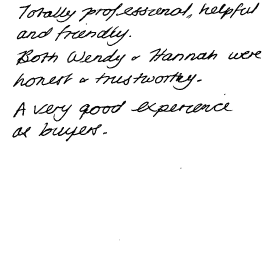 Totally professional, helpful
and friendly.
Both Wendy & Hannah were
honest & trustworthy.
A very good experience
as buyers.